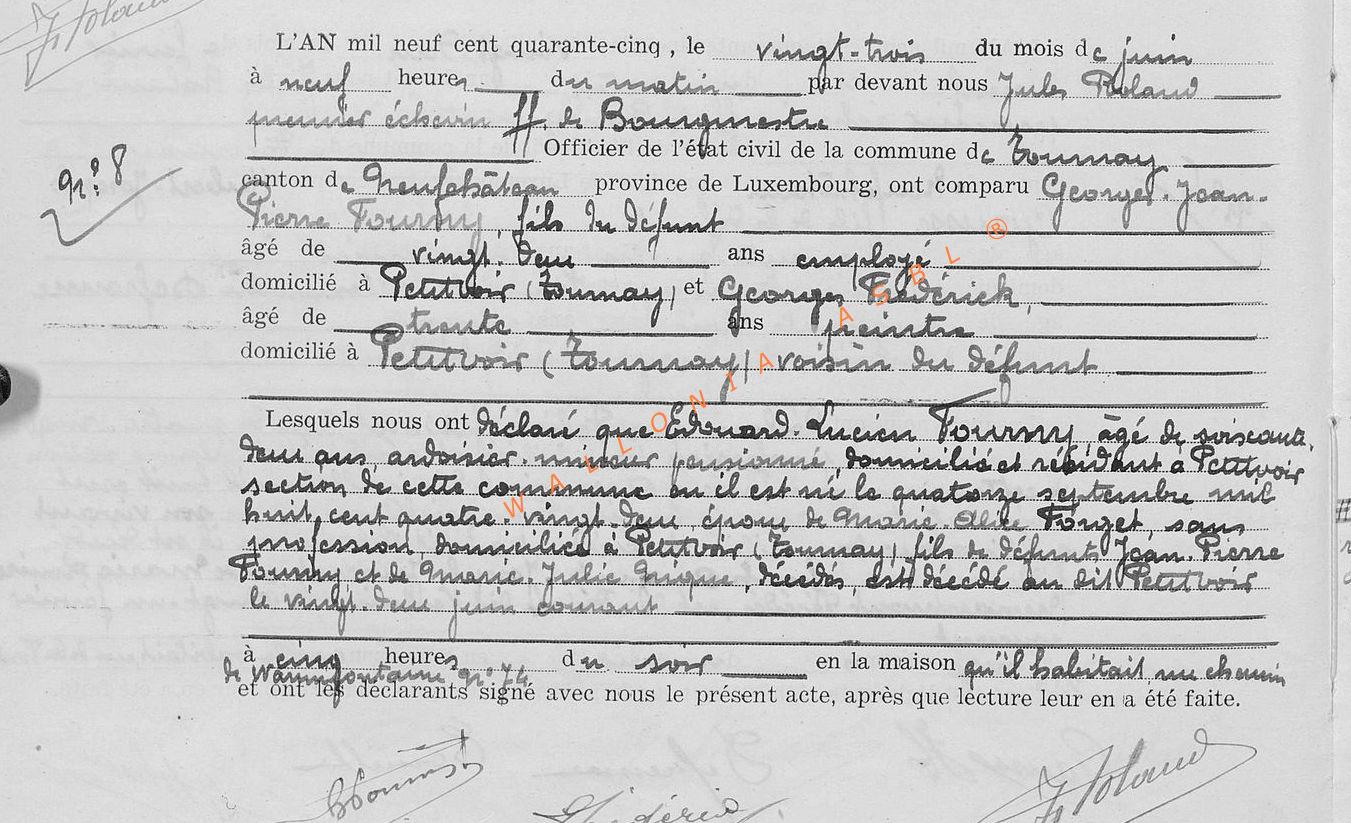 L'AN mil neuf cent quarante-cinq, le vingt-trois du mois de juin
à neuf heures du matin par devant nous Jules Roland
premier échevin ff. de Bourgmestre
Officier de l'état civil de la commune de Tournay
N° 8
canton de Neufchâteau province de Luxembourg, ont comparu Georges-Jean-
Pierre Fourny, fils du défunt
âgé de vingt-deux ans employé
domicilié à Petitvoir (Tournay) et Georges Frédérick,
âgé de trente ans peintre
domicilié à Petitvoir (Tournay) voisin du défunt
Lesquels nous ont déclaré que Edouard-Lucien Fourny, âgé de soixante
deux ans ardoisier mineur pensionné, domicilié et résidant à Petitvoir
section de cette commune où il est né le quatorze septembre mil
huit cent quatre-vingt-deux époux de Marie-Alice Forget, sans
profession, domiciliée à Petitvoir (Tournay) fils de défunts Jean-Pierre
Fourny et de Marie-Julie décédés, est décédé au dit Petitvoir
le vingt-deux juin courant
à cinq heures du soir en la maison qu'il habitait rue chemin
de Warmifontaine N° 74
et ont les déclarants signé avec nous le présent acte, après que lecture leur en a été faite.
WALLONIA ASBL ®
GFourny
GFrédérick
J Roland